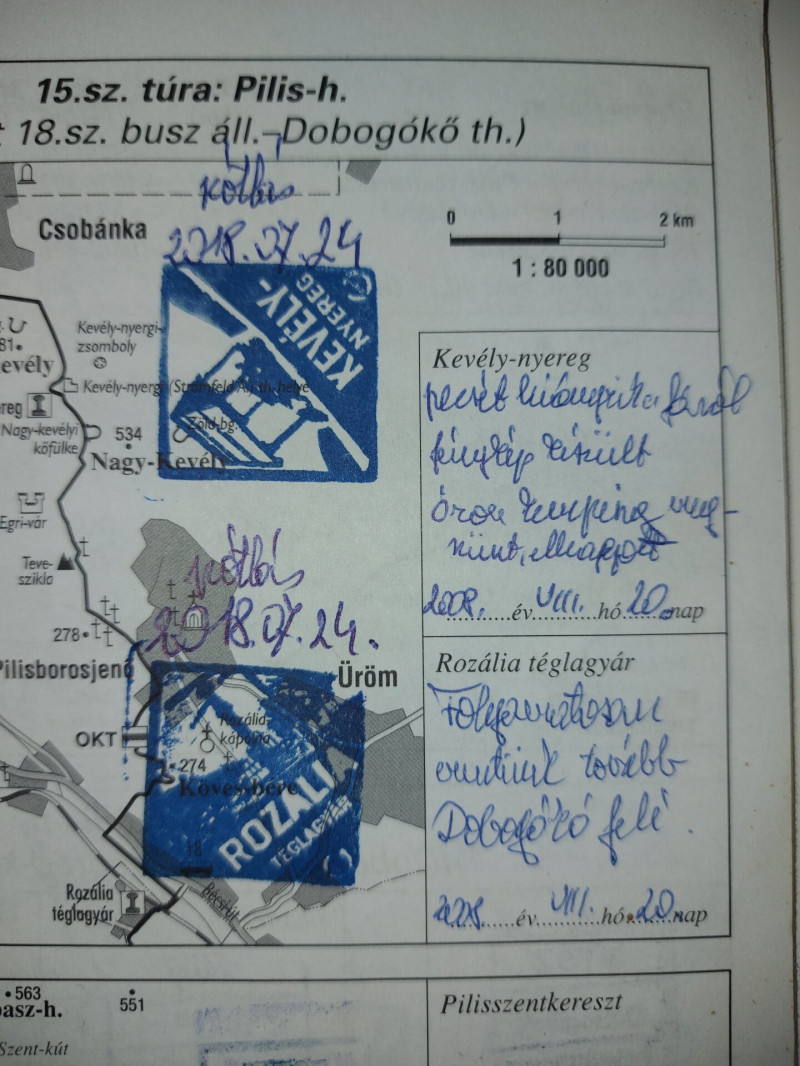 15.sz. túra: Pilis-h.
18.sz. busz áll.–Dobogókő th.)
pótlás
Csobánka
2018.07.24
0 1 2 km
1 : 80 000
KEVÉLY-
NYEREG
Kevély-nyergi-
zsomboly
81.
evély
Kevély-nyergi (Stromfeld A.) th. helye
reg
Nagy-kevélyi
kőfülke
534
Zöld-bg.
Nagy-Kevély
Egri-vár
Teve-
szikla
278
Pilisborosjenő
Kevély-nyereg
pecsét hiányzik a fáról
fénykép készült
meg-
2008. év VIII. hó 20. nap
pótlás
2018.07.24.
Üröm
OKT
Rozália-
kápolna
274
Köves-bérc
ROZÁLIA
TÉGLAGYÁR
18
Bécsi út
Rozália
téglagyár
Rozália téglagyár
Folyamatosan
tovább
Dobogókő felé
2008. év VIII. hó 20. nap
563
asz-h.
551
Szent-kút
Pilisszentkereszt